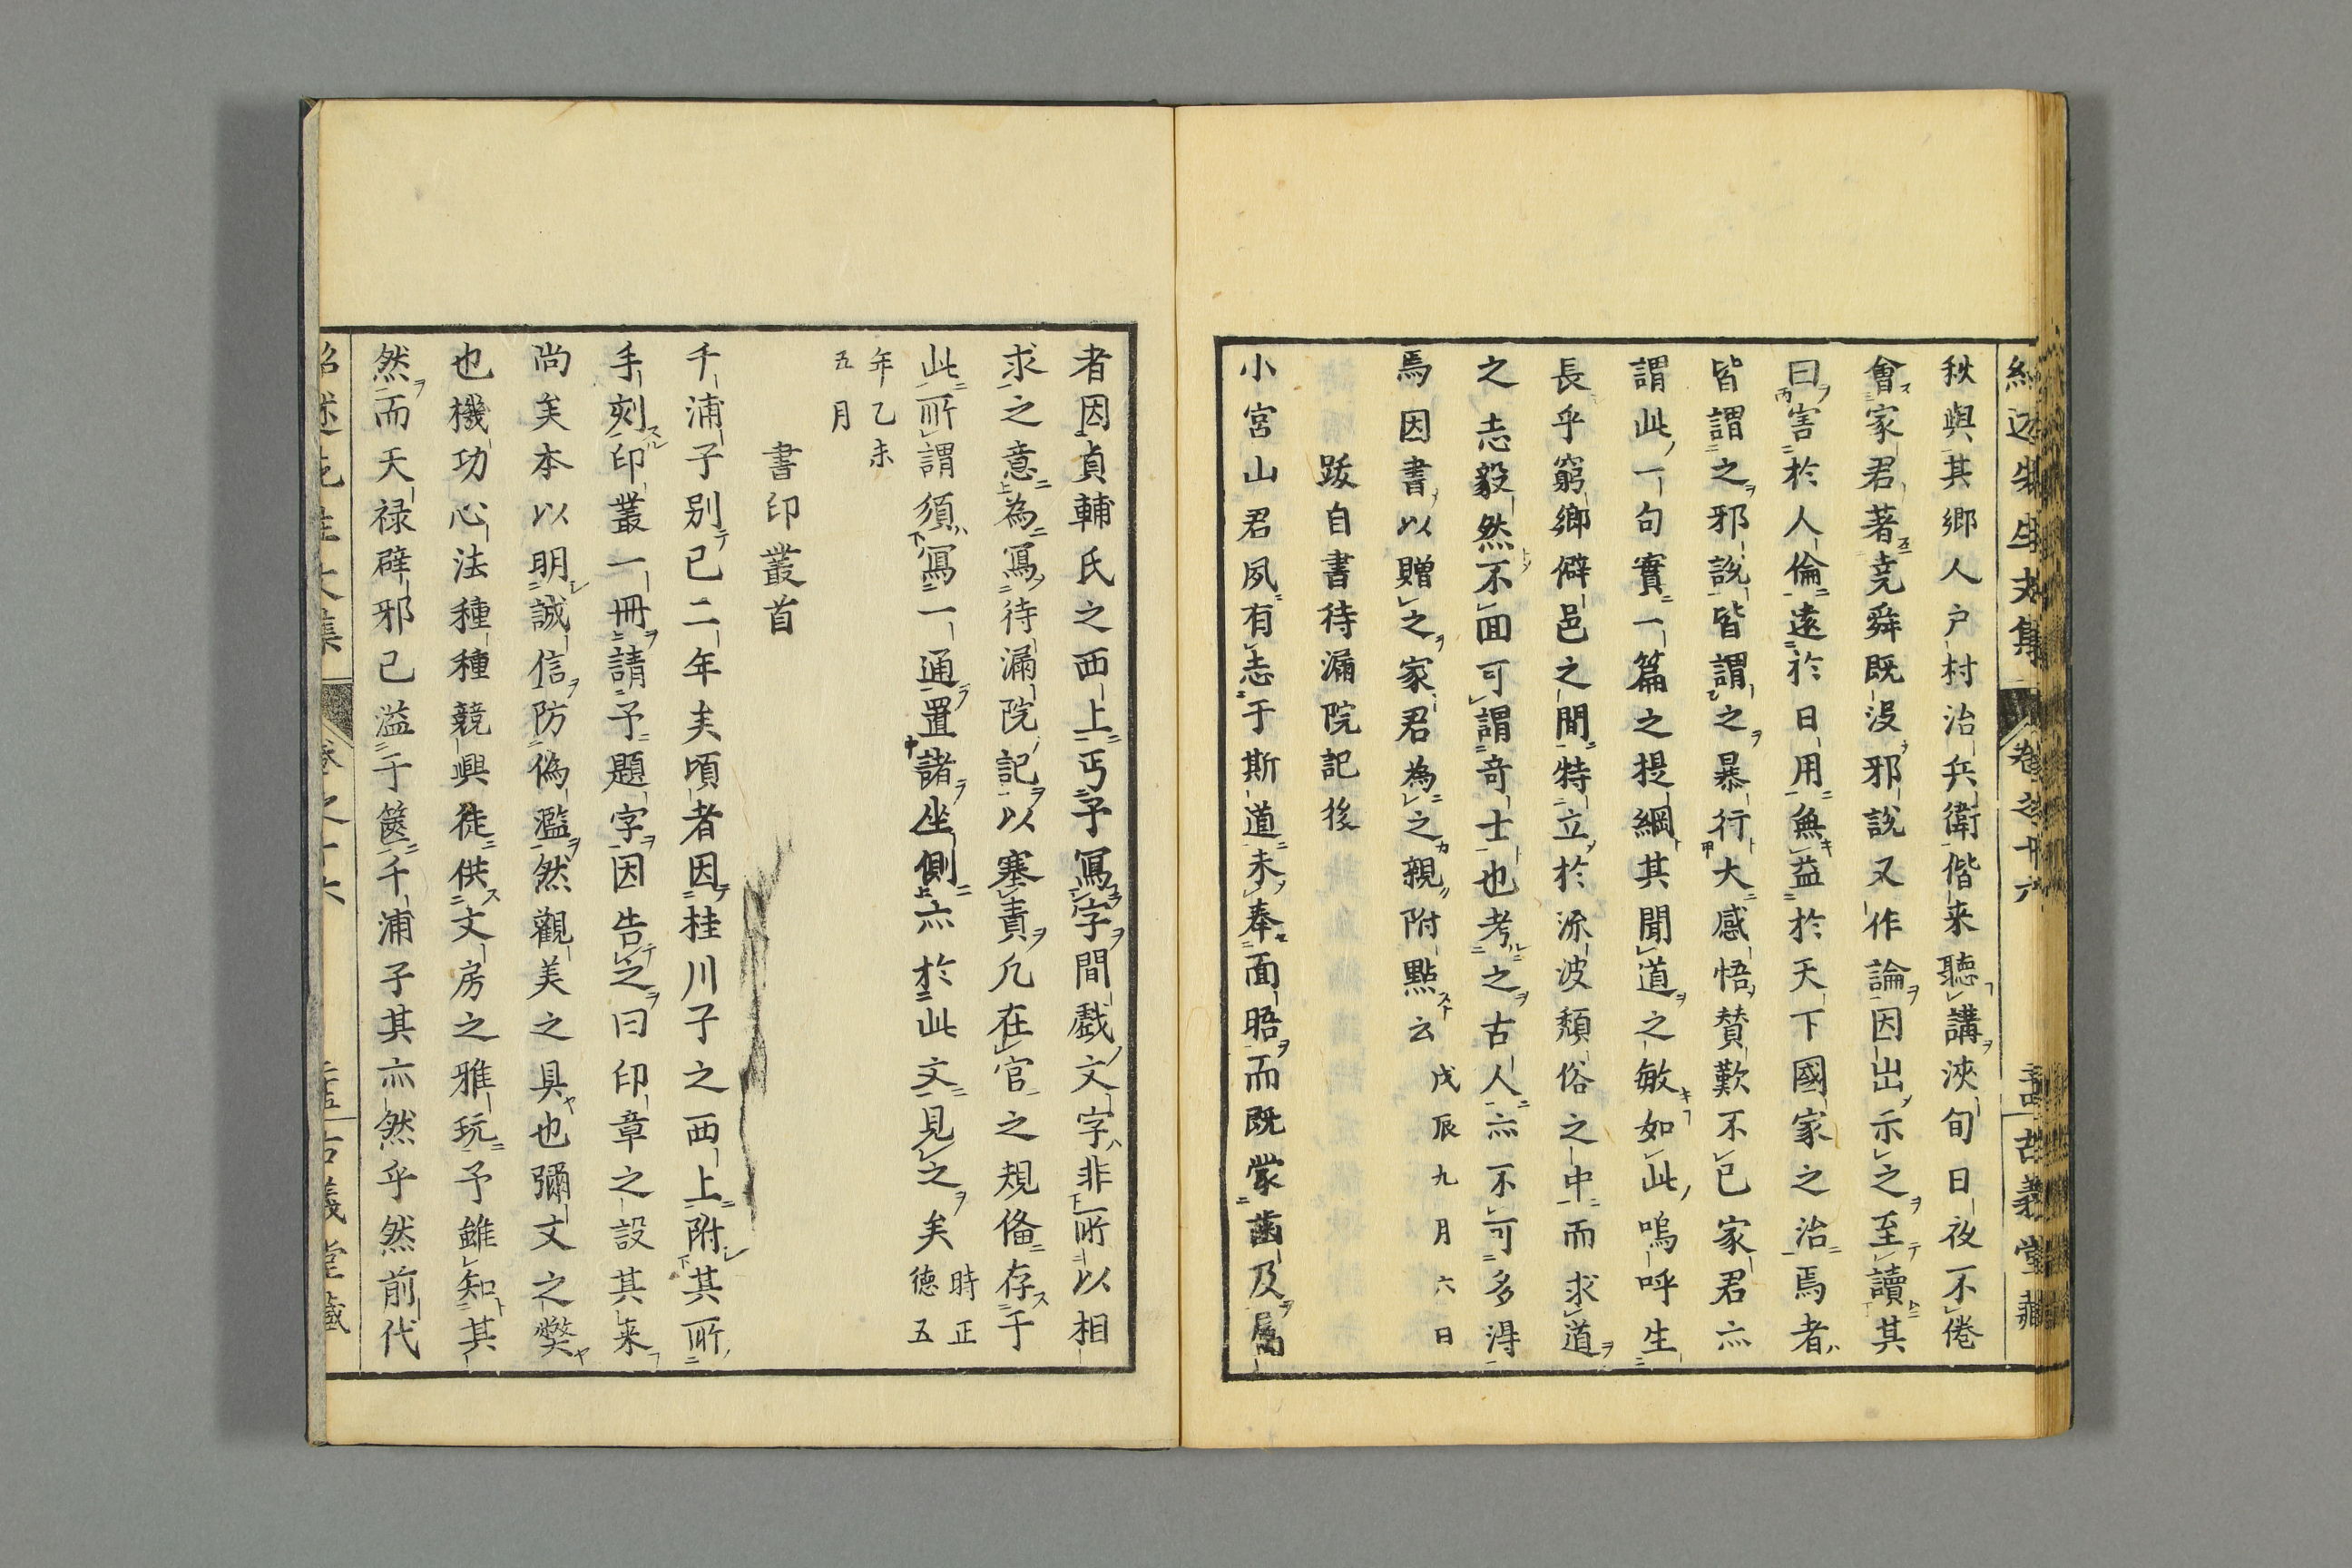 紹述先生文集 卷之十六 古義堂藏
秩與其鄉人戶村治兵衛偕来聽講浹旬日夜不倦
會家君著堯舜既没邪說又作論因出示之至讀其
曰害於人倫遠於日用無益於天下國家之治焉者
皆謂之邪說皆謂之暴行大感悟賛歎不已家君亦
謂此一句實一篇之提綱其聞道之敏如此嗚呼生
長乎窮鄉僻邑之間特立於流波頽俗之中而求道
之志毅然不面可謂竒士也考之古人亦不可多淂
焉因書以贈之家君為之親附點云 戊辰九月六日
跋自書待漏院記後
小宮山君夙有志于斯道未奉面晤而既蒙齒及属
者因貞輔氏之西上丐予寫字間戲文字非所以相
求之意為寫待漏院記以塞責凡在官之規俻存于
此所謂須寫一通置諸坐側亦於此文見之矣 時正德五
年乙未五月
書印叢首
千浦子別已二年矣頃者因桂川子之西上附其所
手刻印叢一冊請予題字因告之曰印章之設其来
尚矣本以明誠信防偽濫然觀美之具也彌文之弊
也機功心法種種競興徒供文房之雅玩予雖知其
然而天禄辟邪已溢于篋千浦子其亦然乎然前代
紹述先生文集 卷之十六 古義堂藏